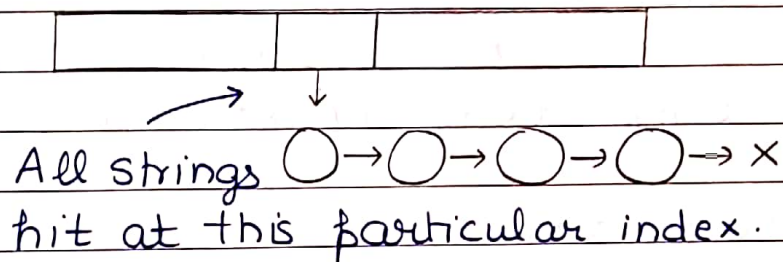 All strings
hit at this particular index.